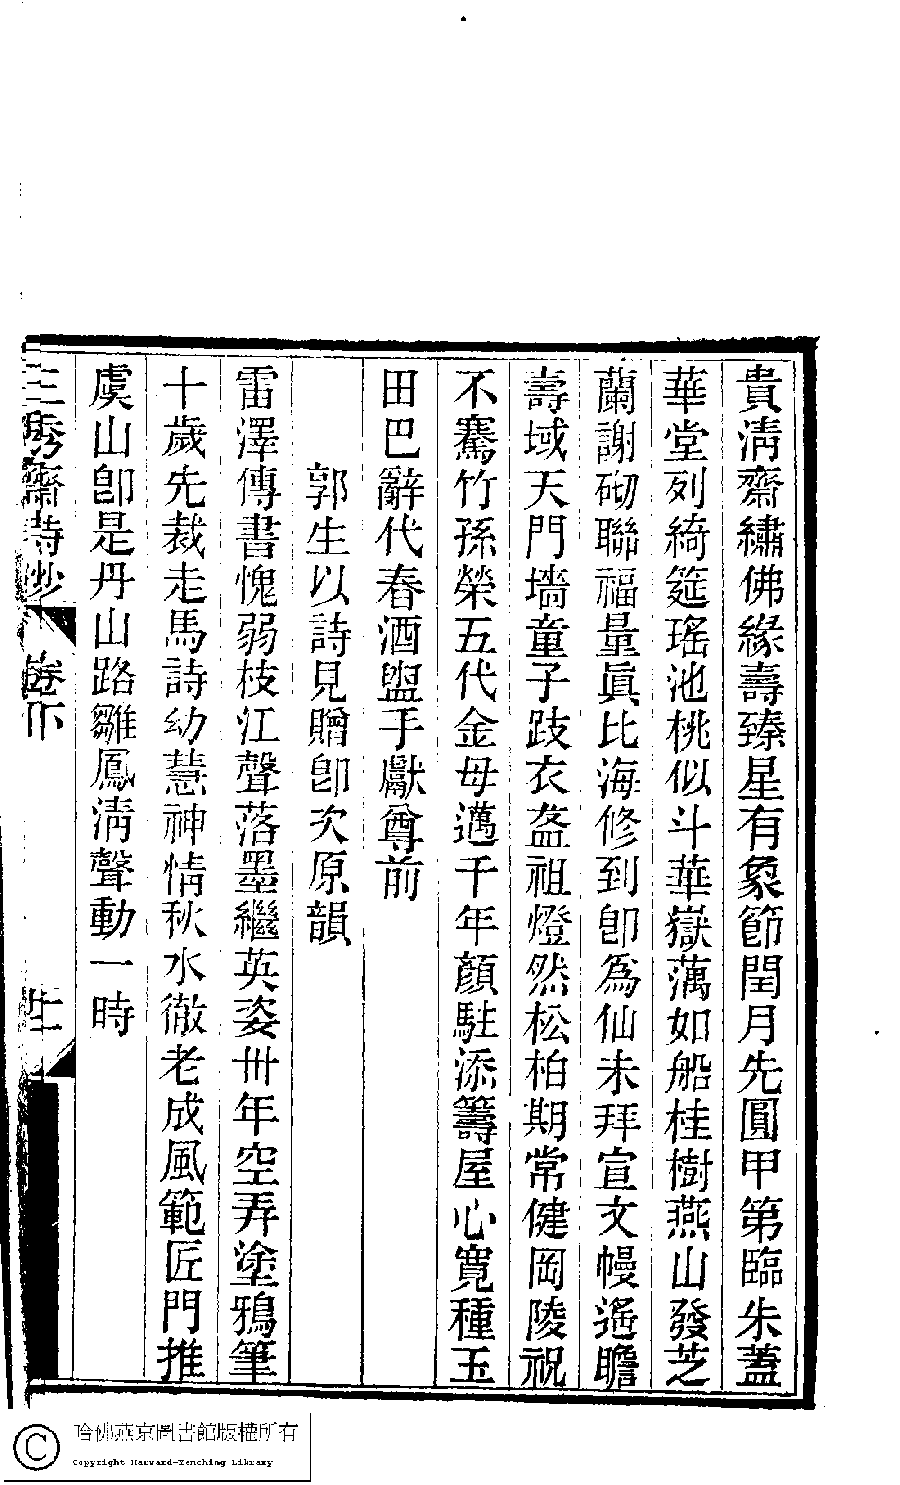 貴清齋繡佛緣壽臻星有象節閏月先圓甲第臨朱蓋
華堂列綺筵瑤池桃似斗華嶽藕如船桂樹燕山發芝
蘭謝砌聯福量眞比海修到卽為仙未拜宣文幔遙瞻
壽域天門墻童子跂衣盋祖燈然松柏期常健岡陵祝
不騫竹孫榮五代金母邁千年顏駐添籌屋心寬種玉
田巴辭代春酒盥手獻尊前
郭生以詩見贈卽次原韻
雷澤傳書愧弱枝江聲落墨繼英姿卅年空弄塗鴉筆
十歲先裁走馬詩幼慧神情秋水徹老成風範匠門推
虞山卽是丹山路雛鳳清聲動一時
三秀齋詩鈔
卷下
哈佛燕京圖書館版權所有
Copyright Harvard-Yenching Library